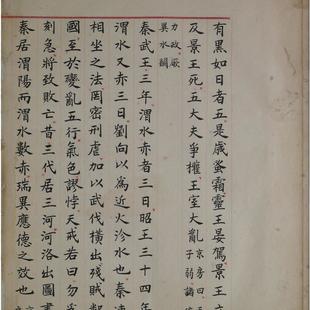 有黑如日者五是歲蚤霜靈王晏駕景王
及景王死五大夫爭權王室大亂京房曰子弱諸
力政厥異水鬭
秦武王三年渭水赤者三日昭王三十四年
渭水又赤三日劉向以為近火沴水也秦連
相坐之法罔密刑虐加以武伐橫出殘賊鄰
國至於變亂五行氣色謬悖天戒若曰勿為
刻急將致敗亡昔三代居三河河洛出圖書
秦居渭陽而渭水數赤瑞異應德之效也